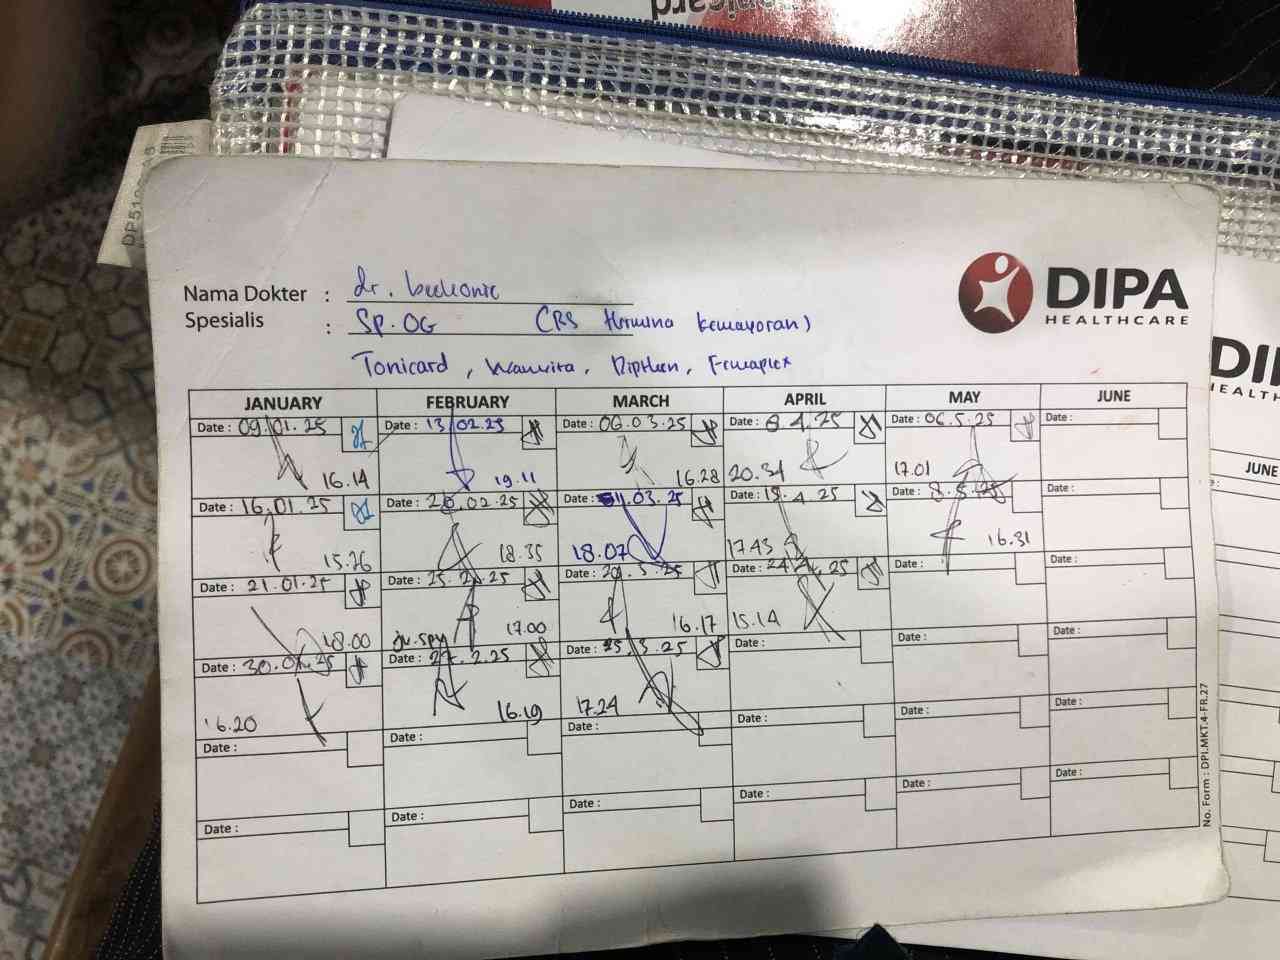 onicard
DP510
DIPA
HEALTHCARE
Nama Dokter :
dr.
Spesialis : Sp.OG (RS Hermina Kemayoran)
Tonicard, Wanvita, Dipthen,
JANUARY FEBRUARY MARCH APRIL MAY JUNE
Date : 09.01.25 Date : 13.02.25 Date : 06.03.25 Date : 8.4.25 Date : 06.5.25 Date :
16.14 19.11 16.28 20.34 17.01
Date : 16.01.25 Date : 20.02.25 Date : 11.03.25 Date : 15.4.25 Date : 8.5.25 Date :
15.26 18.35 18.07 17.43 16.31
Date : 21.01.25 Date : 25.2.25 Date : 20.3.25 Date : 24.4.25 Date : Date :
18.00 17.00 16.17 15.14
Date : 30.01.25 Date : 27.2.25 Date : 25.3.25 Date : Date : Date :
16.20 16.19 17.24
Date : Date : Date : Date : Date :
Date : Date : Date : Date : Date :
No. Form : DPI.MKT.4-FR.27
DI
EALTH
JUNE